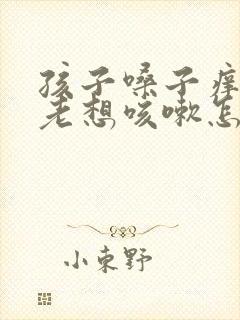 孩子嗓子痒
老想咳嗽怎
小束野